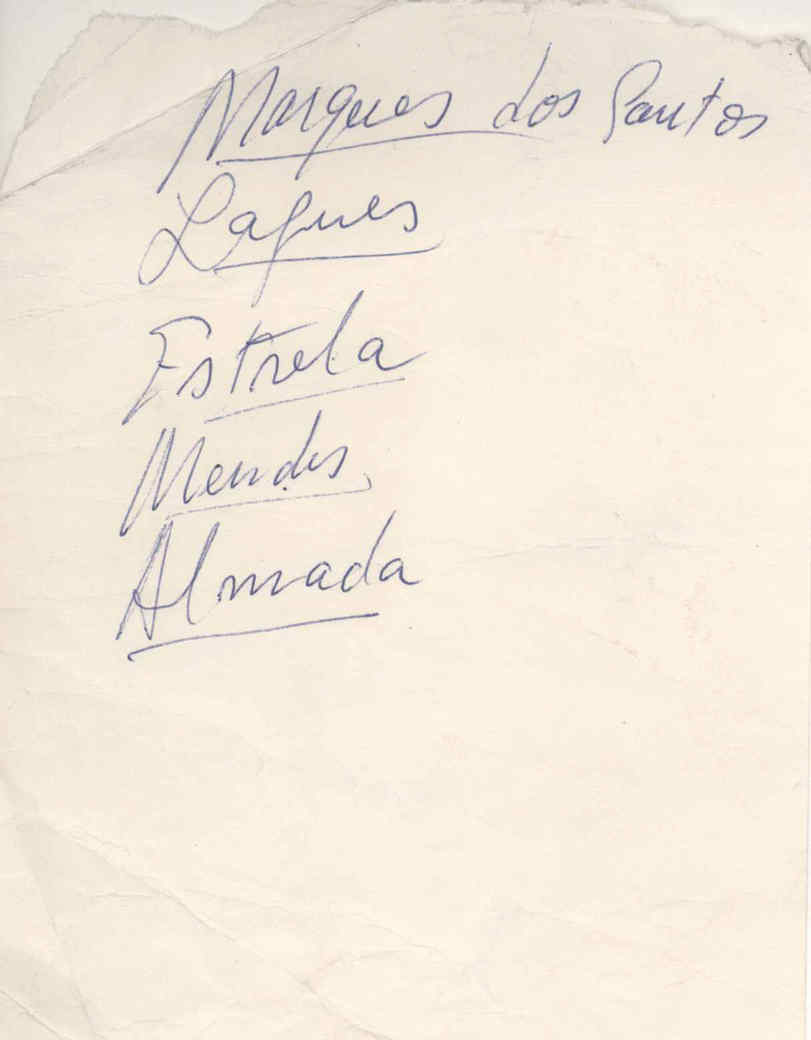 Marques dos Santos
Lagues
Estrela
Mendes
Almada